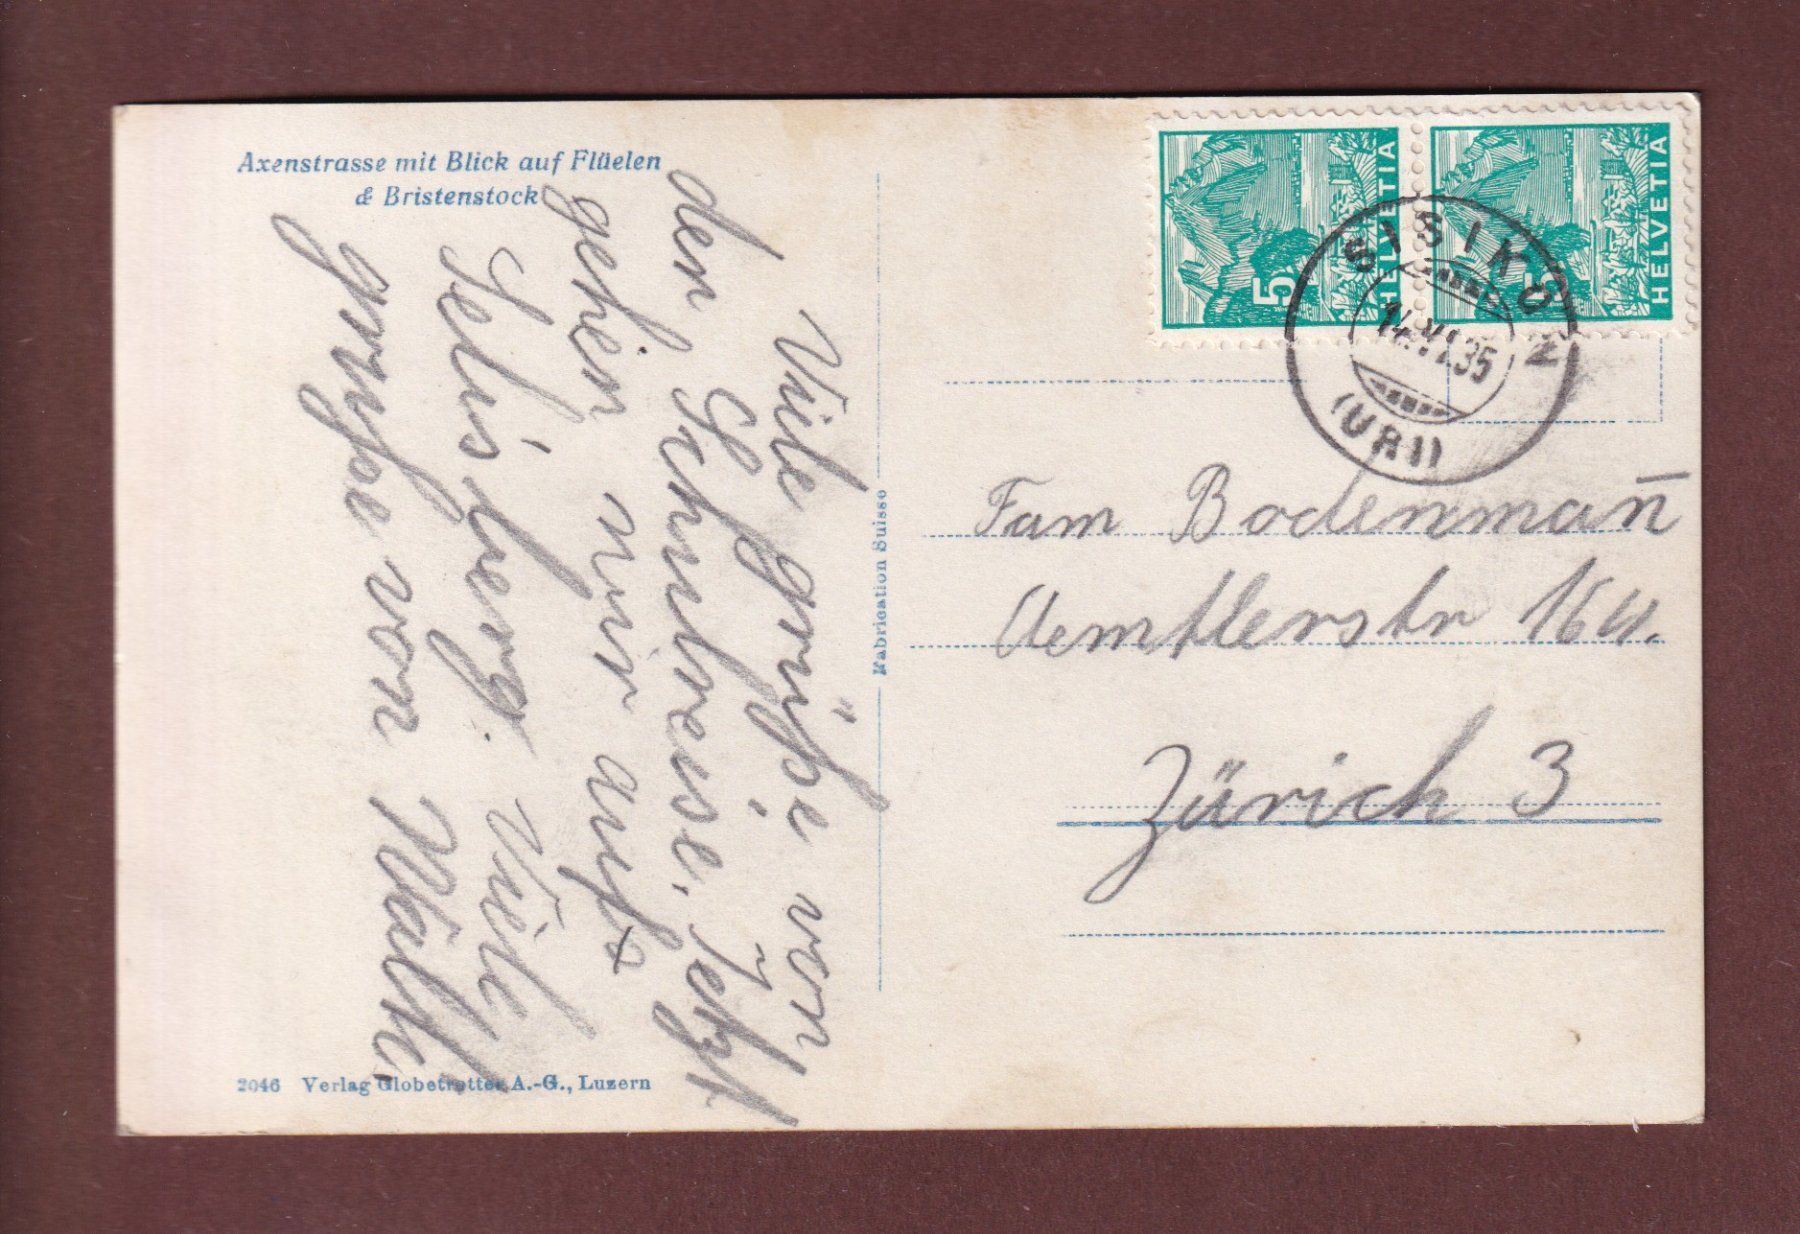 Axenstrasse mit Blick auf Flüelen
& Bristenstock
Viele grüße von
der Schulreise. Jetzt
gehen wir auf
Selisberg. Viele
grüße von Walti.
2046 Verlag Globetrotter A.-G., Luzern
Fabrication Suisse
5
HELVETIA
5
HELVETIA
SISIKON
14.VI.35
(URI)
Fam Bodenman̄
Aemtlerstr 164.
Zürich 3